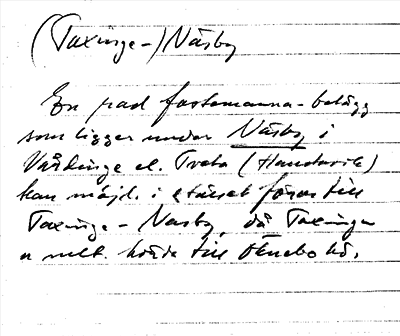 (Taxinge-) Näsby
En rad fastemanna-belägg
som ligger under Näsby i
Vårdinge el. Tveta (Handarik)
kan möjl. i stället föras till
Taxinge-Näsby, då Taxinge
medt. hörde till Öknebo hd.